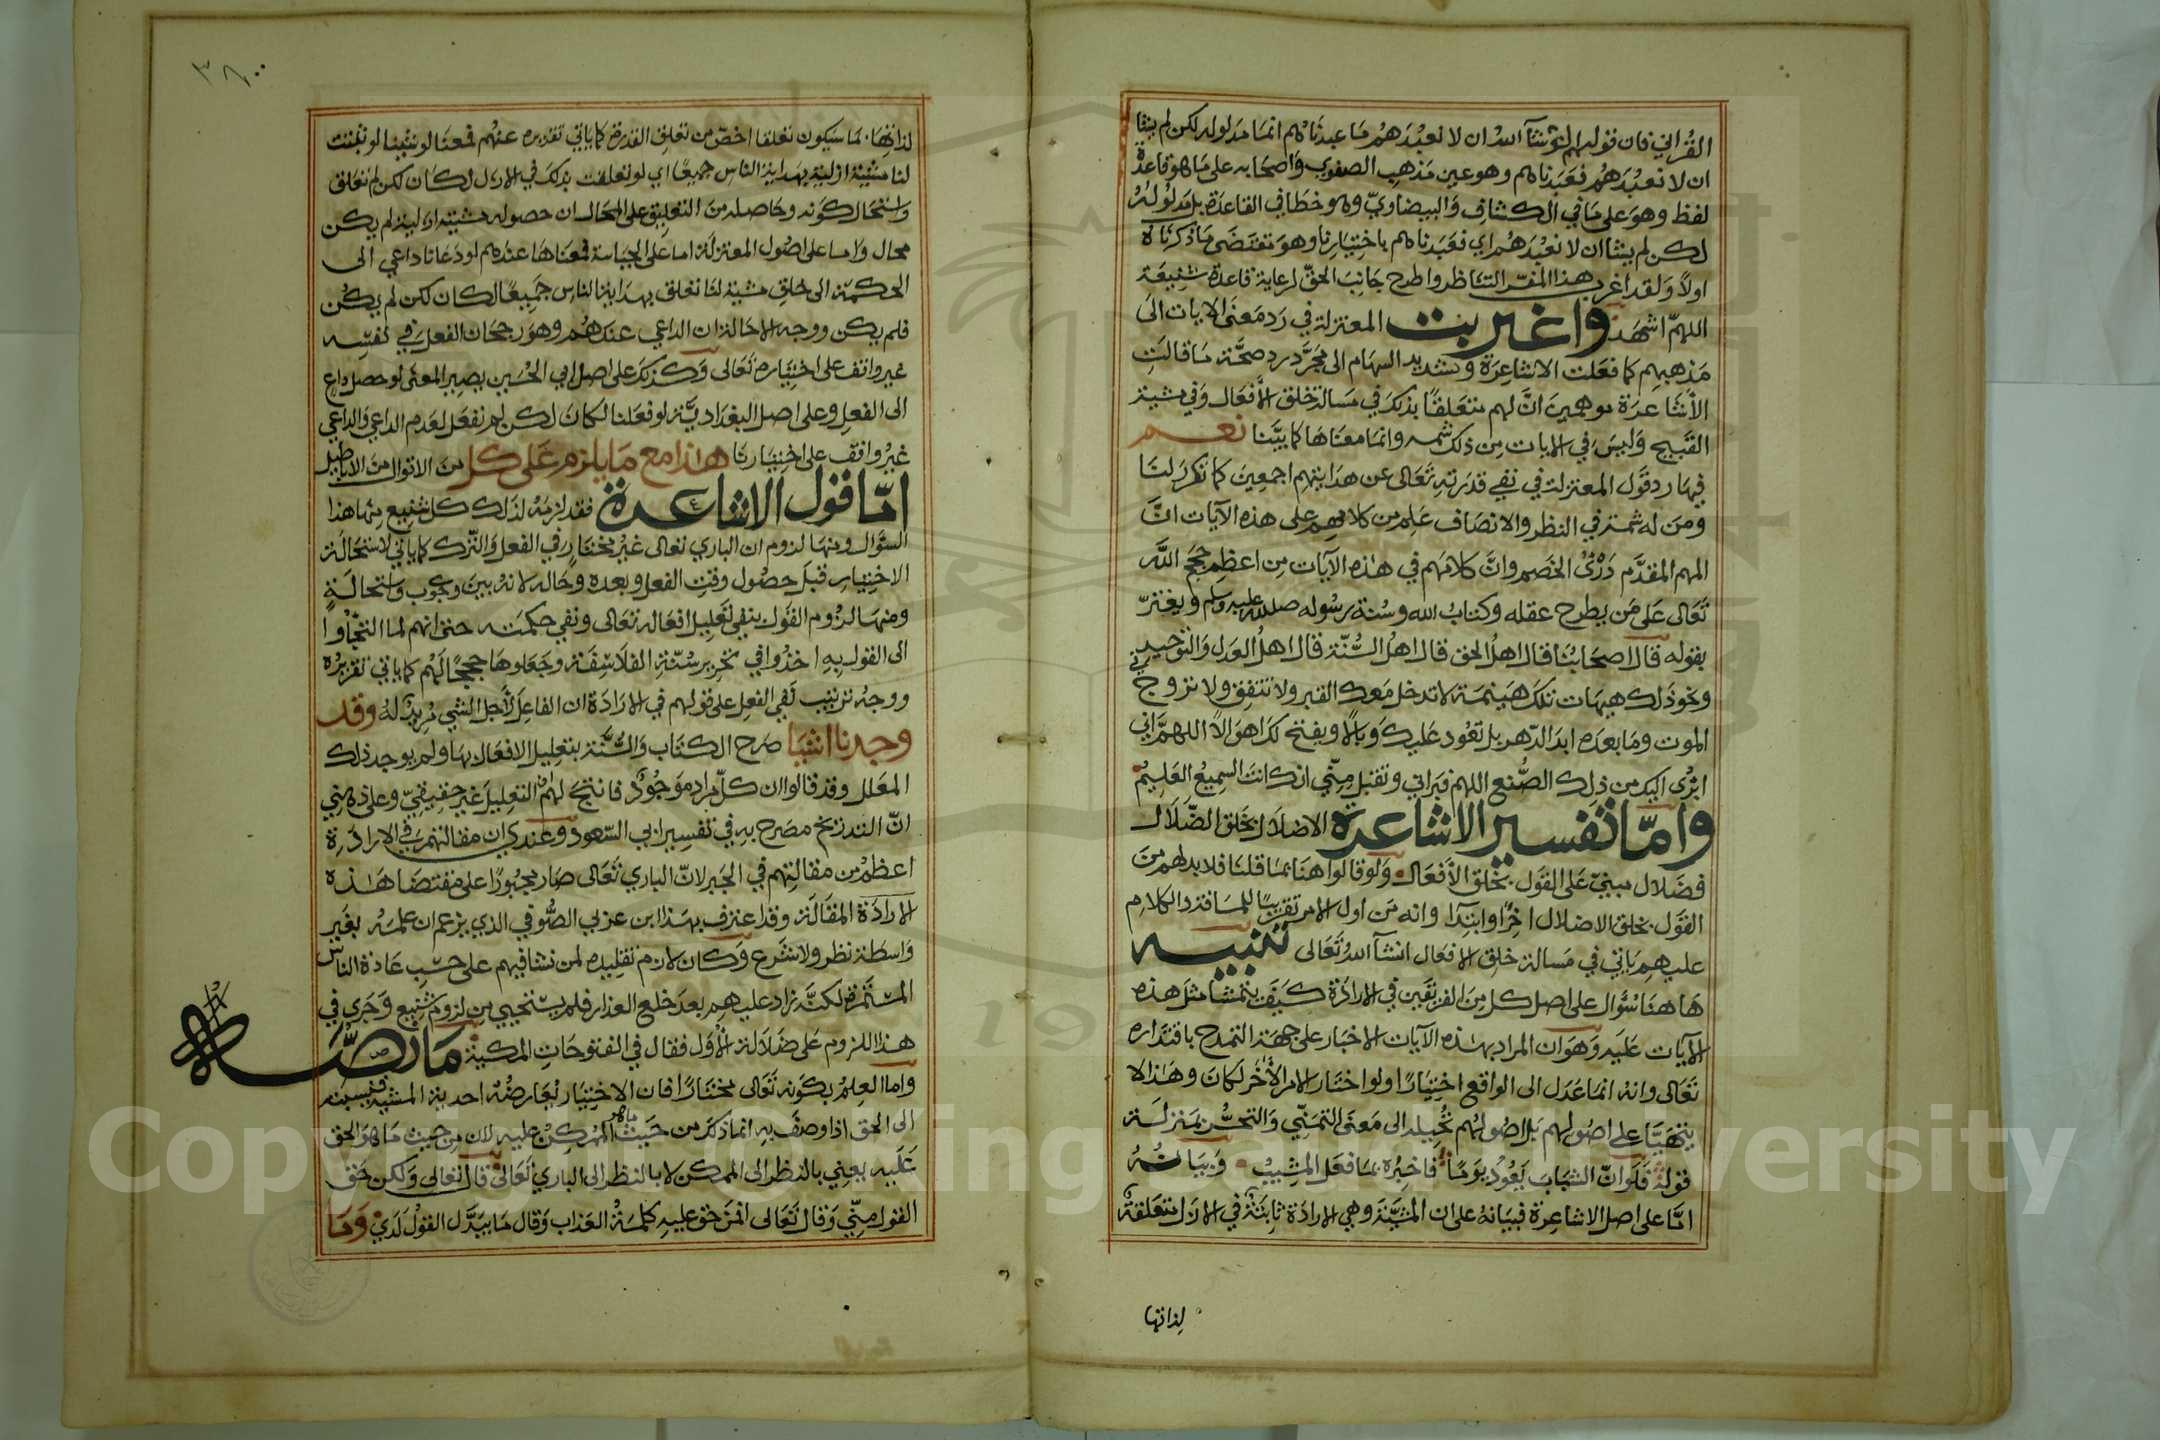 القرآني فان قولهم لو شآء الله ان لا نعبدهم ما عبدناهم انما مدلوله لكن لم يشا
ان لا نعبدهم فعبدناهم وهو عين مذهب الصفوي واصحابه على ما هو قاعدة
لفظ وهو على ما في الكشاف والبيضاوي وهو خطا في القاعدة بل مدلوله
لكن لم يشا ان لا نعبدهم اي فعبدناهم باختيارنا وهو مقتضى ما ذكرناه
اولا ولقد اغرب هذا المقر التناظر واطرح جانب الحق لرعاية قاعدة شنيعة
اللهم اشهد واغربت المعتزلة في رد معنى الايات الى
مذهبهم كما فعلت الاشاعرة وتسديد السهام الى مجرد رد صحة ما قالت
الأشاعرة موهمين ان لهم متعلقا بذلك في مسالة خلق الأفعال وفي مشية
القبيح وليس في الايات من ذلك شمه وانما معناها كما بينا نعم
فيها رد قول المعتزلة في نفي قدرته تعالى عن هدايتهم اجمعين كما تكرر لنا
ومن له شمة في النظر والانصاف علم من كلامهم على هذه الآيات ان
المهم المقدم درئ الخصم وان كلامهم في هذه الآيات من اعظم حجج الله
تعالى على من يطرح عقله وكتاب الله وسنة رسوله صلى الله عليه وسلم ويغتر
بقوله قال اصحابنا قال اهل الحق قال اهل السنة قال اهل العدل والتوحيد
ونحو ذلك هيهات تلك هينمة لا تدخل معك القبر ولا تتفق ولا تروج في
الموت وما بعده ابد الدهر بل تعود عليك وبالا ويفتح لك اهوالا اللهم اني
ابرى اليك من ذلك الصنع اللهم فبراتي وتقبل مني انك انت السميع العليم
واما تفسير الاشاعرة الاضلال بخلق الضلال
فضلال مبني على القول بخلق الأفعال ولو قالوا هنا بما قلنا فلا بد لهم من
القول بخلق الاضلال اخرا وابتدا وانه من اول الامر تقريبا للمسافة والكلام
عليهم ياتي في مسالة خلق الافعال انشآ الله تعالى تنبيه
ها هنا سؤال على اصل كل من الفريقين في الارادة كيف يتمشا مثل هذه
الآيات عليه وهو ان المراد بهذه الآيات الاخبار على جهة التمدح باقتداره
تعالى وانه انما عدل الى الواقع اختيارا ولو اختار الامر الآخر لكان وهذا لا
يتهيا على اصولهم بل اصولهم تحيله الى معنى التمني والتحسر بمنزلة
قوله فلو ان الشباب يعود يوما فاخبره بما فعل المشيب وبيانه
اما على اصل الاشاعرة فبيانه على ان المشية وهي الارادة ثابتة في الازل متعلقة
لذاتها
٣٨٠٠
لذاتها بما سيكون تعلقا اخص من تعلق القدرة كما ياتي تقديره عنهم فمعنا لو شئنا لو تعلقت
لنا مشية ازلية بهداية الناس جميعا اي لو تعلقت بذلك في الازل لكان لكن لم تعلق
واستحال كونه وحاصله من التعليق على المحال ان حصوله مشية ازلية لم يكن
محال واما على اصول المعتزلة اما على الجباسة فمعناها عندهم لو دعانا داعي الى
الحكمة الى خلق مشية لنا تعلق بهداية الناس جميعا لكان لكن لم يكن
فلم يكن ووجه الاحالة ان الداعي عندهم وهو رجحان الفعل في نفسه
غير واقف على اختياره تعالى وكذلك على اصل ابي الحسين يصير المعنى لو حصل داع
الى الفعل وعلى اصل البغدادية لو فعلنا لكان لكن لم نفعل لعدم الداعي والداعي
غير واقف على اختيارنا هذا مع ما يلزم على كل من الاقوال من الاباطيل
امّا قول الاشاعرة فقد لزمه لذلك كل شنيع منها هذا
السؤال ومنها لزوم ان الباري تعالى غير مختار في الفعل والترك كما ياتي لاستحالة
الاختيار قبل حصول وقت الفعل وبعده وحاله لانه بين وجوب واستحالة
ومنها لزوم القول بنفي تعليل افعاله تعالى ونفي حكمته حتى انهم لما التجأوا
الى القول به اخذوا في تحرير سنة الفلاسفة وجعلوها حججا لهم كما ياتي تقريره
ووجه ترتيب نفي الفعل على قولهم في الارادة ان الفاعل لأجل الشي مريد له وقد
وجدنا اشيا صرح الكتاب والسنة بتعليل الافعال بها ولم يوجد ذلك
المعلل وقد قالوا ان كل مراد موجود فانتج لهم ان التعليل غير حقيقي وعلى ذهني
انّ التدرنخ مصرح به في تفسير ابي السعود وعندي ان مقالتهم في الارادة
اعظم من مقالتهم في الجبر لان الباري تعالى صار مجبورا على مقتضا هذه
الارادة المقالة وقد اعترف بهذا ابن عربي الصوفي الذي يزعم ان علمه بغير
واسطة نظر ولا شرع وكان لازم تقليده لمن نشا فيهم على حسب عادة الناس
المستمرة لكنه زاد عليهم بعد خلع العذار فلم يستحيي من لزوم شنيع وجرى في
هذا اللزوم على ضلالة الأول فقال في الفتوحات المكية ما نصه
واما العلم بكونه تعالى مختارا فان الاختيار يعارضه احدية المشية فنسبته
الى الحق اذا وصف به انما ذلك من حيث ما هو الممكن عليه لا من حيث ما هو الحق
عليه يعني بالنظر الى الممكن لا بالنظر الى الباري تعالى قال تعالى ولكن حق
القول مني وقال تعالى افمن حق عليه كلمة العذاب وقال ما يبدل القول لدي وما
Copyright © King Saud University